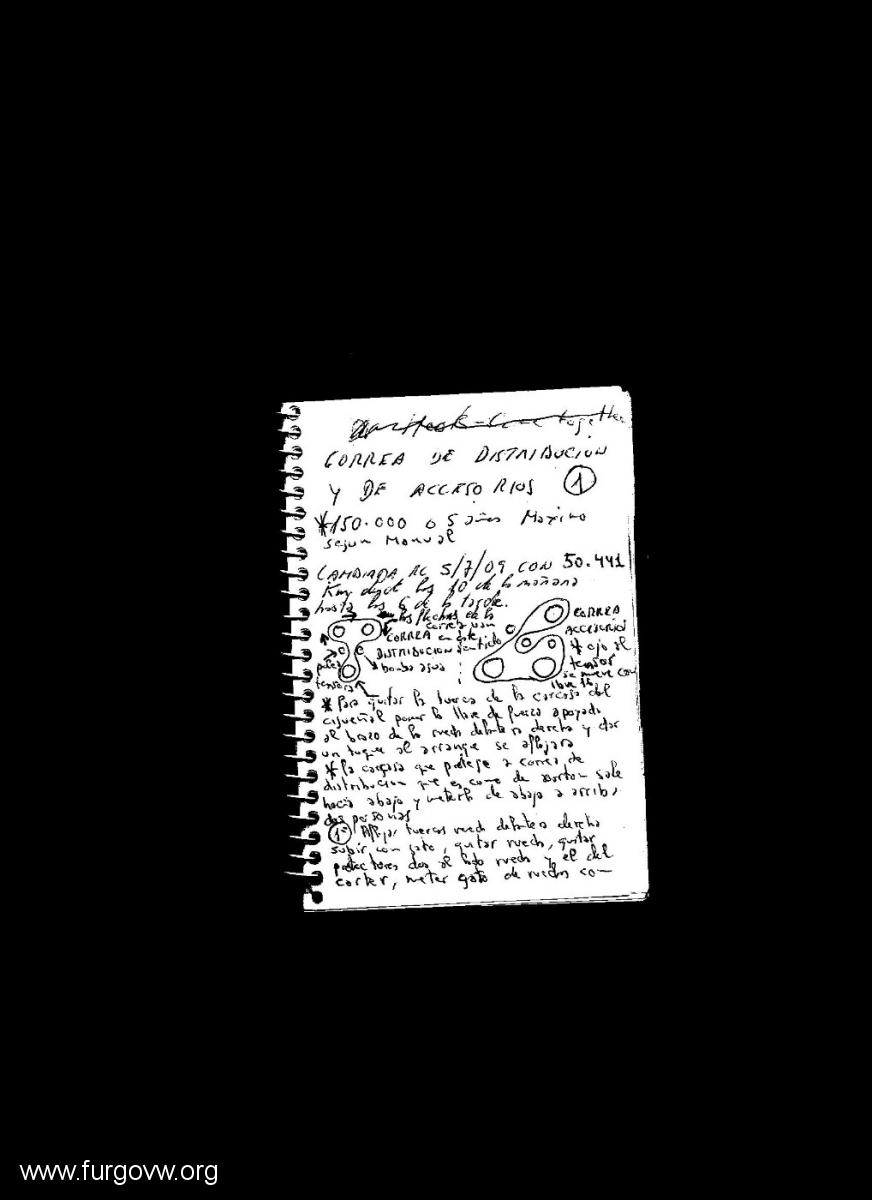 CORREA DE DISTRIBUCION
Y DE ACCESORIOS 1
*150.000 o 5 años Maximo
segun Manual
CAMBIADA AL 5/7/09 CON 50.441
Km desde las 10 de la mañana
hasta las 6 de la tarde.
las flechas de la
correa van
CORREA en este
DISTRIBUCION sentido
bomba agua
polea
tensora
CORREA
ACCESORIOS
* ojo el
tensor
se mueve con
llave 15
* Para quitar la tuerca de la carcasa del
cigueñal poner la llave de fuerza apoyada
al brazo de la rueda delantera derecha y dar
un toque al arranque se aflojara
* la carcasa que protege a correa de
distribucion que es como de carton sale
hacia abajo y meterla de abajo a arriba
dos personas
1º Aflojar tuercas rueda delantera derecha
subir con gato, quitar rueda, quitar
protectores dos el bajo rueda y el del
carter, meter gato de ruedas co-
www.furgovw.org